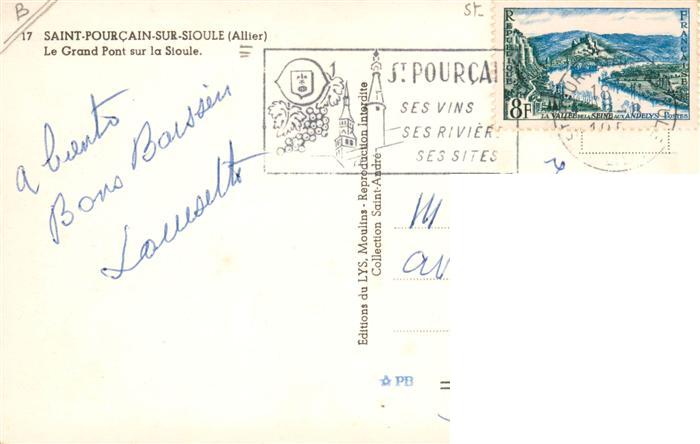 B
St
17 SAINT-POURÇAIN-SUR-SIOULE (Allier)
Le Grand Pont sur la Sioule.
St POURÇAI
SES VINS
SES RIVIÈRE
SES SITES
REPUBLIQUE FRANÇAISE
8F
LA VALLÉE DE LA SEINE AUX ANDELYS
POSTES
a biento
Bons Baisers
Editions du LYS, Moulins - Reproduction Interdite
Collection Saint-André
M
PB